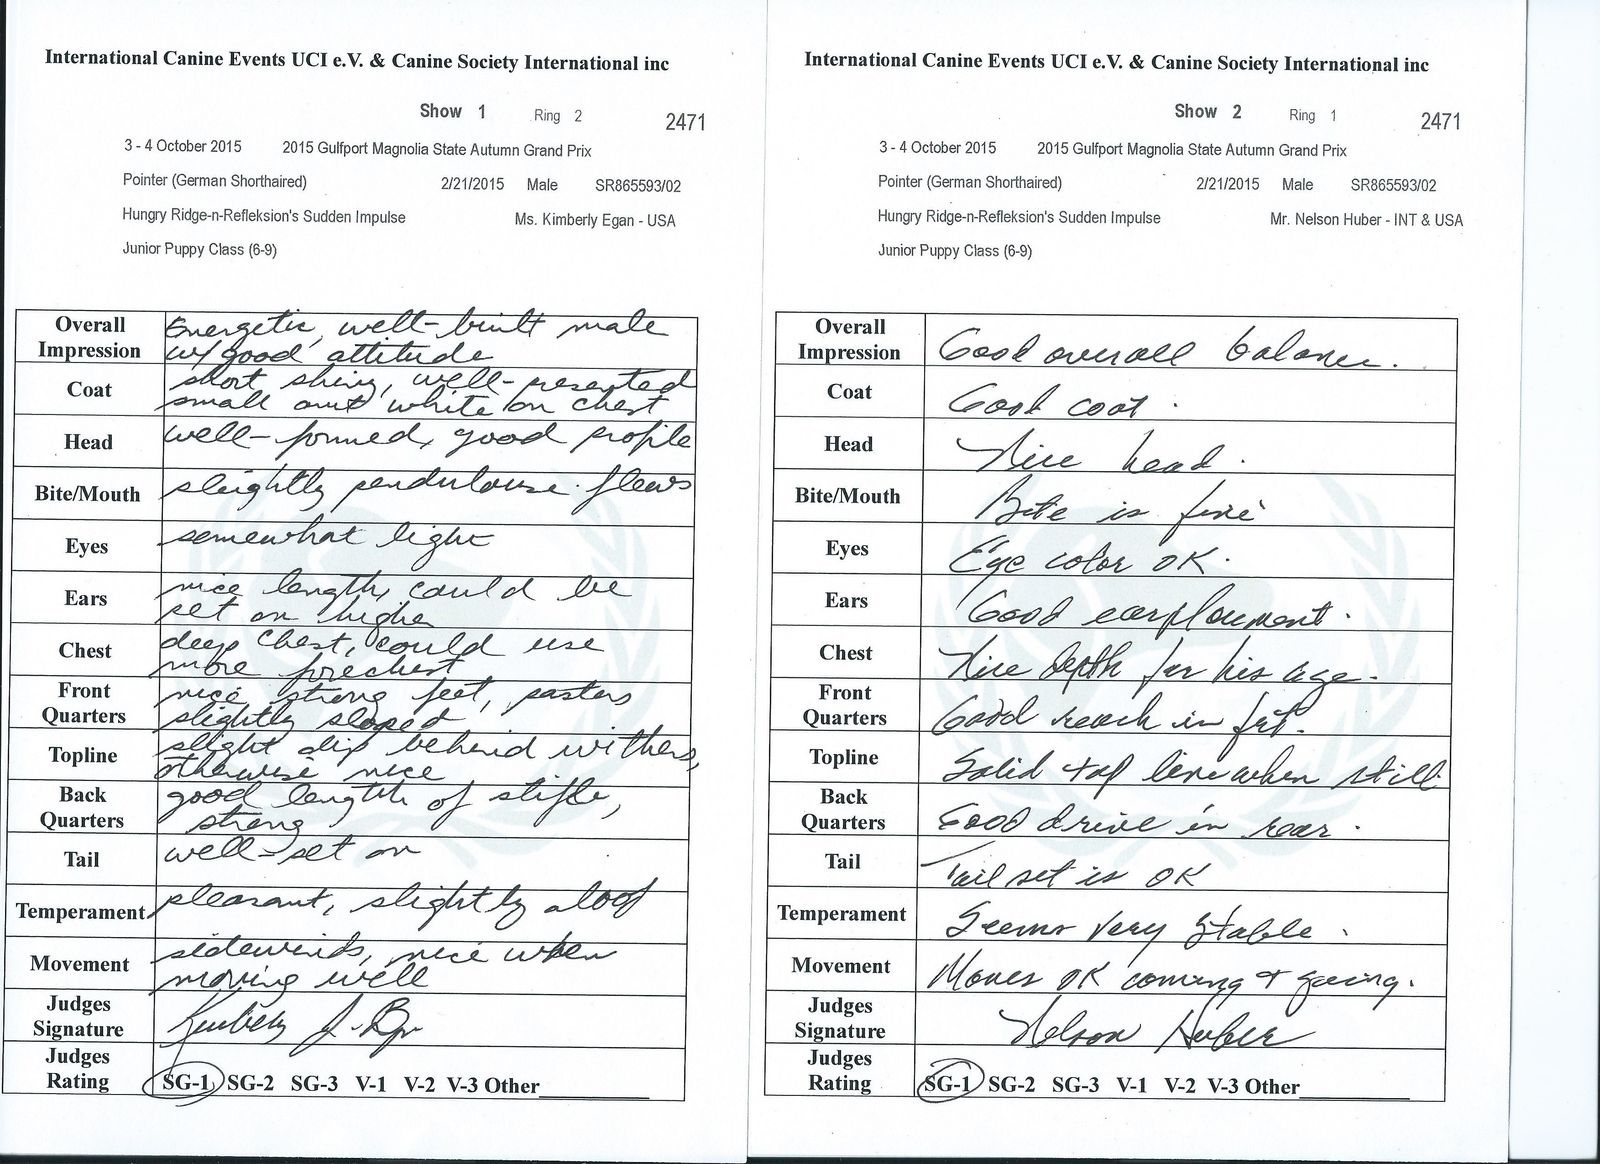 International Canine Events UCI e.V. & Canine Society International inc
Show 1 Ring 2 2471
3 - 4 October 2015 2015 Gulfport Magnolia State Autumn Grand Prix
Pointer (German Shorthaired) 2/21/2015 Male SR865593/02
Hungry Ridge-n-Refleksion's Sudden Impulse Ms. Kimberly Egan - USA
Junior Puppy Class (6-9)
Overall Impression
Energetic, well-built male
w/ good attitude
Coat
short shiny, well-presented
small amt white on chest
Head
well-formed, good profile
Bite/Mouth
slightly pendulouse flews
Eyes
somewhat light
Ears
nice length, could be
set on higher
Chest
deep chest, could use
more forechest
Front Quarters
nice strong feet, pasters
slightly sloped
Topline
slight dip behind withers,
otherwise nice
Back Quarters
good length of stifle,
strong
Tail
well-set on
Temperament
pleasant, slightly aloof
Movement
sidewinds, nice when
moving well
Judges Signature
Judges Rating
SG-1 SG-2 SG-3 V-1 V-2 V-3 Other
International Canine Events UCI e.V. & Canine Society International inc
Show 2 Ring 1 2471
3 - 4 October 2015 2015 Gulfport Magnolia State Autumn Grand Prix
Pointer (German Shorthaired) 2/21/2015 Male SR865593/02
Hungry Ridge-n-Refleksion's Sudden Impulse Mr. Nelson Huber - INT & USA
Junior Puppy Class (6-9)
Overall Impression
Good overall balance.
Coat
Good coat.
Head
Nice head.
Bite/Mouth
Bite is fine
Eyes
Eye color OK.
Ears
Good earplacement.
Chest
Nice depth for his age.
Front Quarters
Good reach in frt.
Topline
Solid top line when still
Back Quarters
Good drive in rear.
Tail
Tail set is OK
Temperament
Seems very stable.
Movement
Moves OK coming & going.
Judges Signature
Nelson Huber
Judges Rating
SG-1 SG-2 SG-3 V-1 V-2 V-3 Other